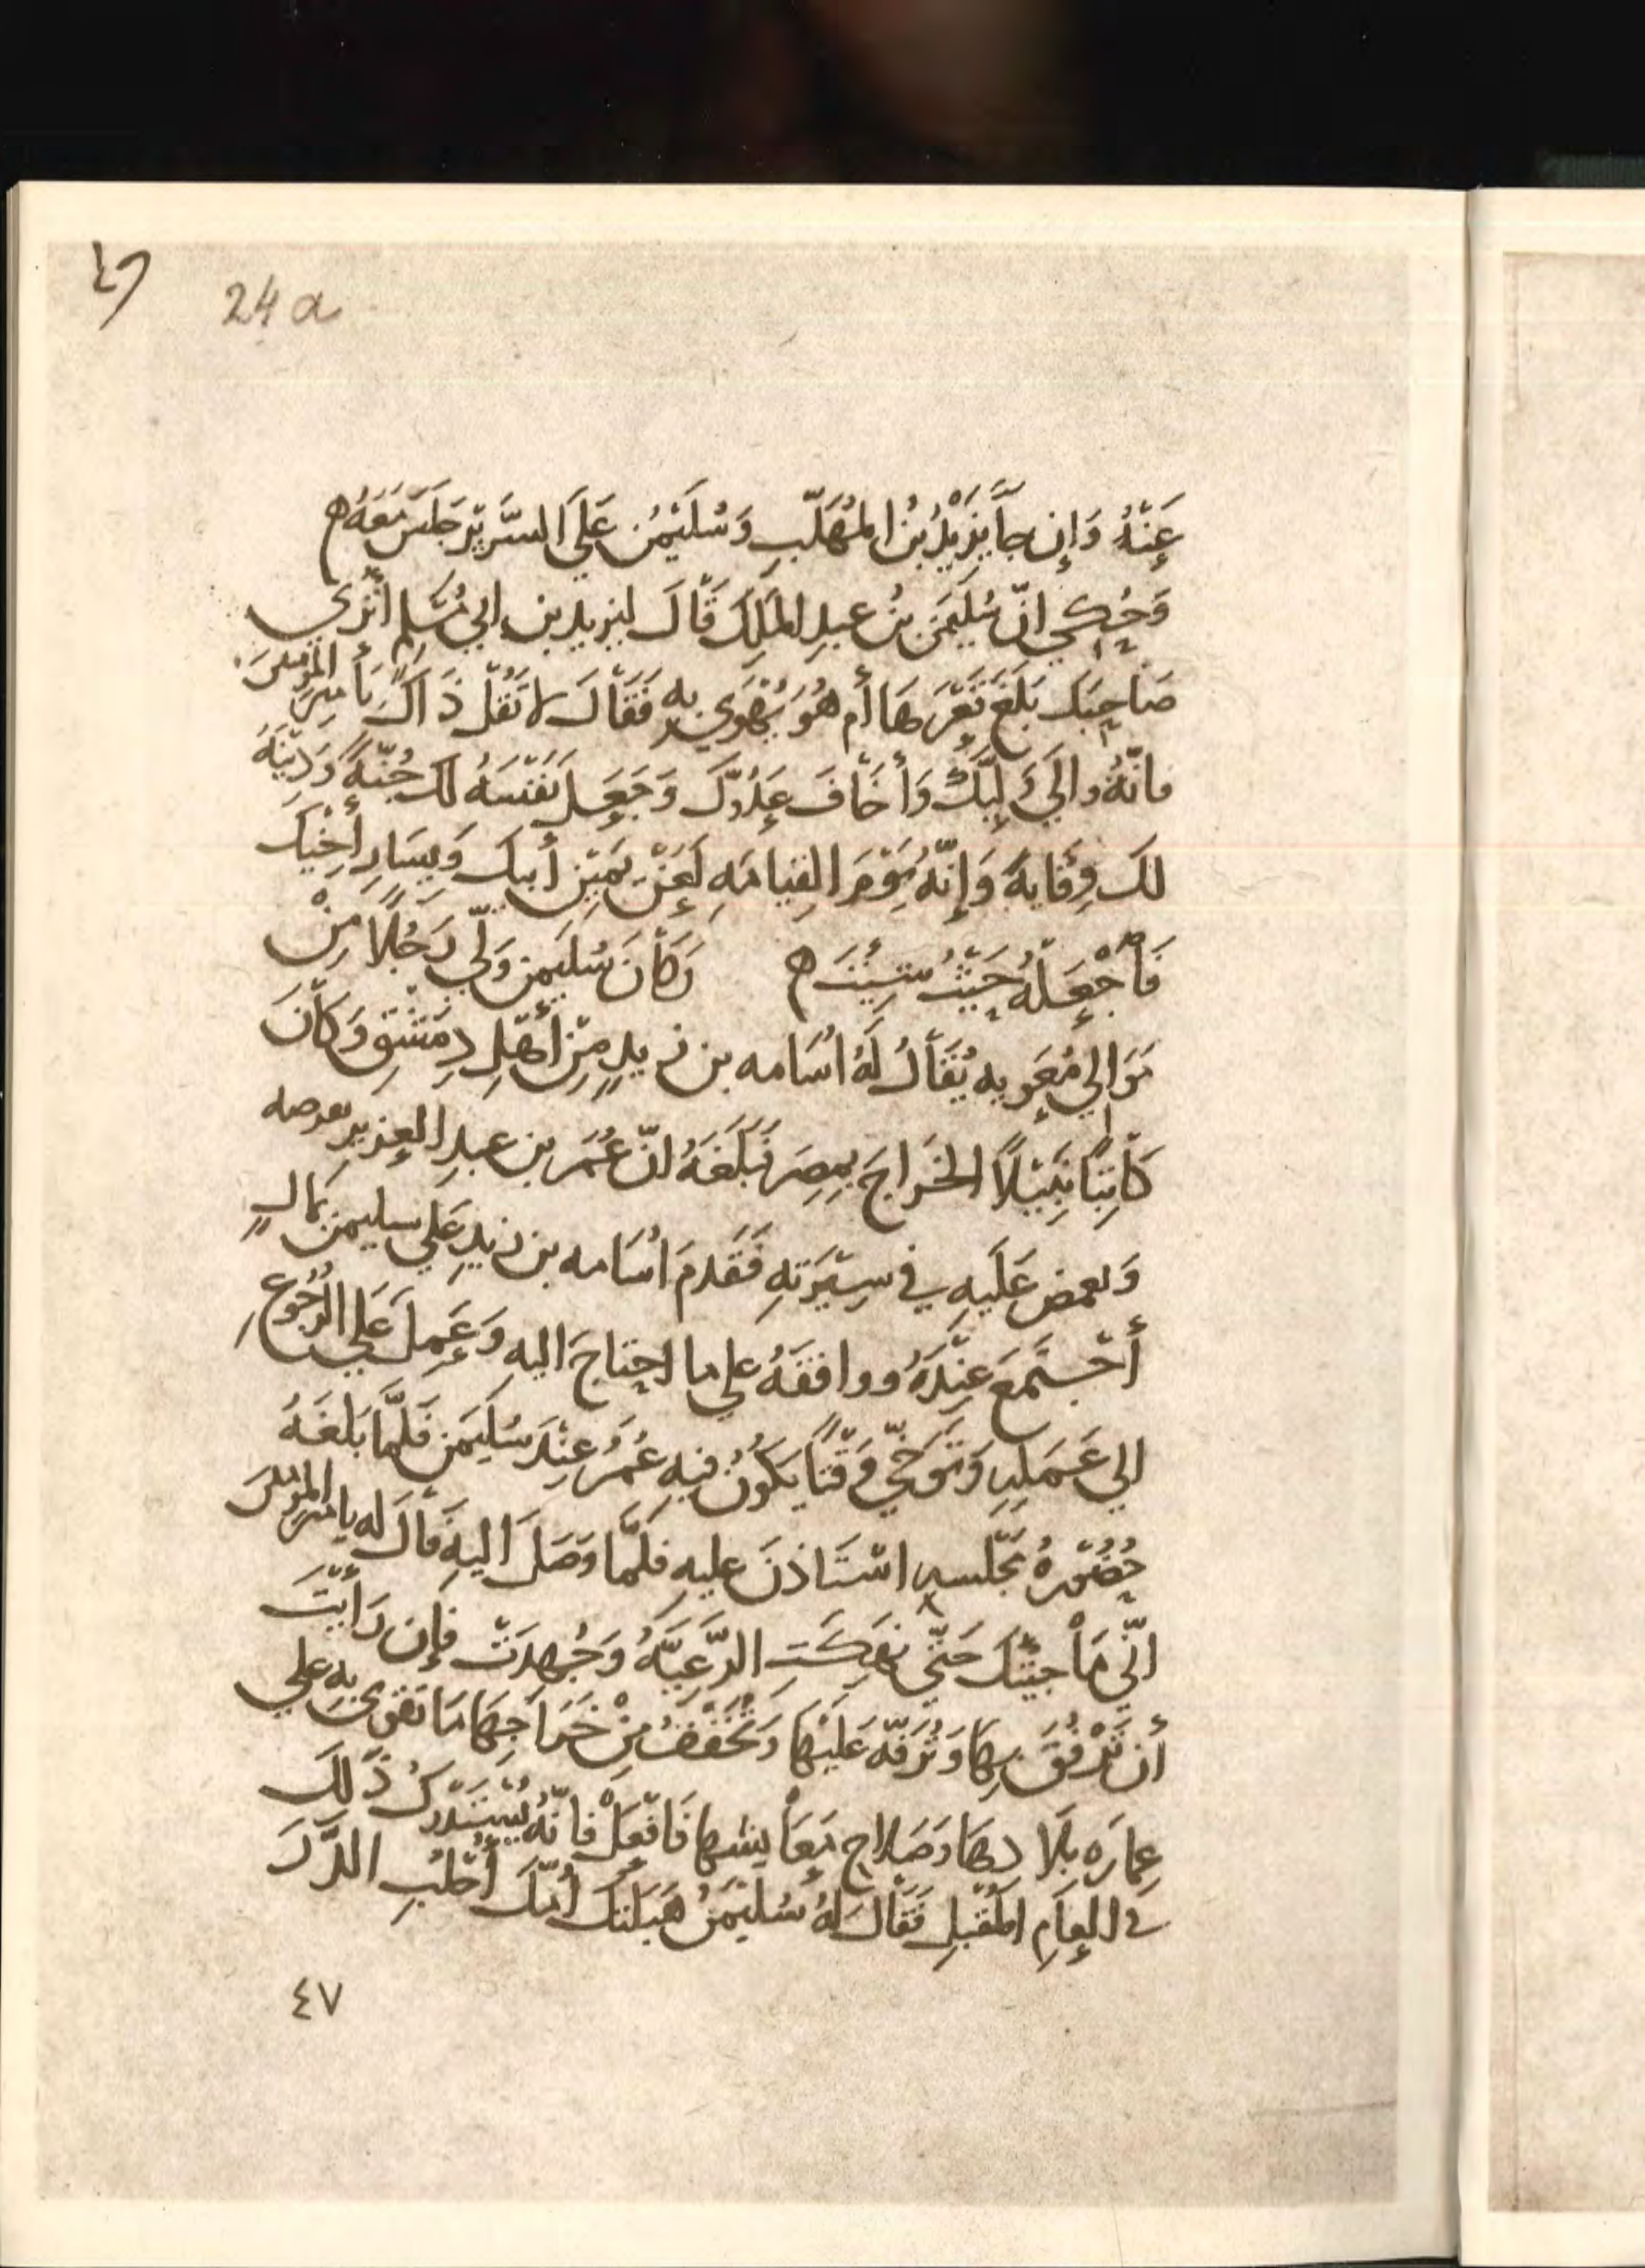 ٤٩
24 a
عَنْهُ وَإِن جَآ يَزِيْدُ بْنُ المُهَلَّبِ وَسُلَيْمٰنُ عَلَى السَّرِيْرِ جَلَسَ مَعَهُ ه
وَحُكِي انّ سُلَيمَنَ بْنَ عبدِ المَلِكَ قَالَ ليزيدِ بن ابي مُسْلِمٍ أَتَرَي
صَاحِبَكَ بَلَغَ قَعْرَهَا أَم هُوَ يُهْوَي بِهِ فَقَالَ لا تَقُلْ ذَاكَ يَأ مِيرَ المؤمنينَ
فانّهُ والَي وَليَّكَ وَأَخَافَ عَدُوَّكَ وَجَعَلَ نَفْسَهُ لَكَ جُنّةً وَدِيْنَهُ
لكَ وِقَايةً وَإِنّهُ يَوْمَ القِيامَهِ لَعَنْ يَمِيْنِ أَبيكَ وَيَسَارِ أَخِيْكَ
فَأجْعَلْهُ حَيْثُ شِئْتَ ه وَكَانَ سُلَيمن وَلّي رَجُلًا مِنْ
مَوَالِي مُعَويه يُقَالُ لَهُ اُسَامه بن زيدٍ مِنْ أَهْلِ دِمَشْقِ وَكَانَ
كَاتِبًا نَبِيْلًا الخَرَاجَ بمِصرَ فَبَلَغَهُ انّ عُمَرَ بن عبدِ العزيزِ
عَلَيهِ في سِيْرَتهِ فَقَدِمَ اُسَامه بن زيدٍ عَلي سليمن بمَالٍ
أجْتَمَعَ عِنْدَهُ ووافقَهُ علي ما احتاجَ اليهِ وَعَمِلَ عَلي الرُّجُوعِ
الي عَمَلِهِ وَتَوَخّي وَقْتًا يَكُونُ فيهِ عُمَرُ عِنْدَ سُلَيمَن فَلَمَّا بَلَغَهُ
حُضُوْرهُ مجْلسه اسْتَاذنَ عليهِ فَلَمَّا وَصَلَ اليهِ قَالَ لَه يامير المؤمنينَ
انّي مَا جيْتُكَ حَتَّي نُهِكَتِ الرَّعِيَّهُ وَجُهِدَتْ فإن رَأيْتَ
أن تَرْفُقَ بِهَا وَتُرَفّهَ عَلَيْهَا وَتُخَفّفَ مِنْ خَرَاجِهَا مَا تَقْوي بِهِ علي
عِمَارَهِ بِلَادِهَا وَصَلاحِ مَعَايشهَا فَافْعَلْ فانّهُ يُسْتَدْرَكُ ذَلكَ
في العَامِ المُقْبِلِ فَقَالَ لَهُ سُلَيْمَنُ هَبَلتْكَ اُمّكَ أحْلُبِ الدَّرَّ
٤٧